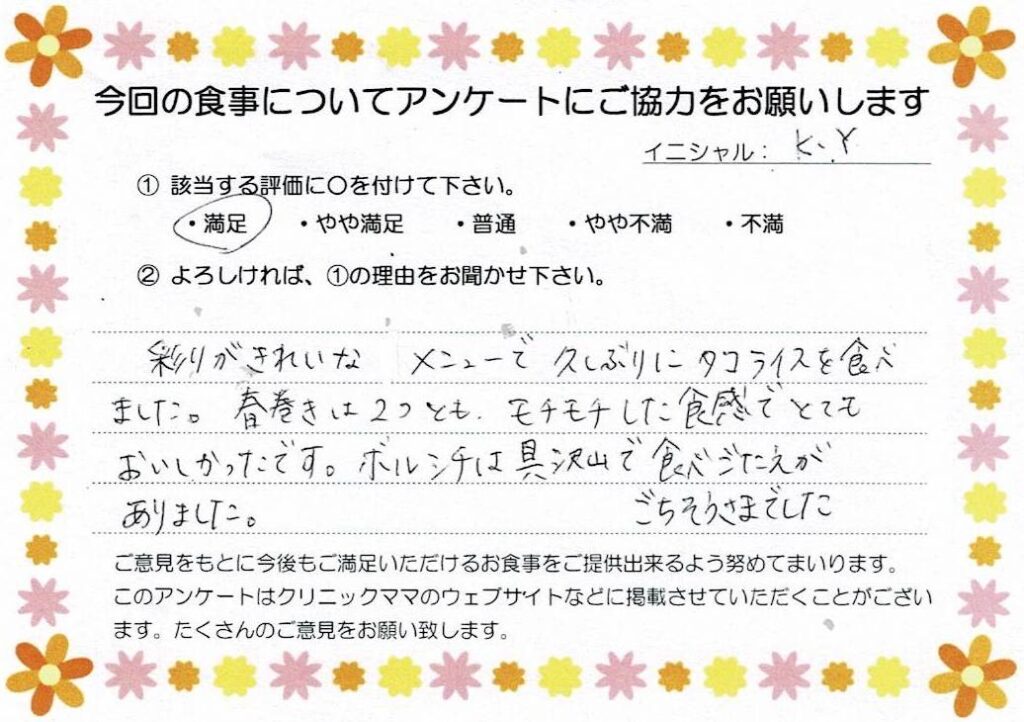 今回の食事についてアンケートにご協力をお願いします
イニシャル： K.Y
① 該当する評価に〇を付けて下さい。
・満足 ・やや満足 ・普通 ・やや不満 ・不満
② よろしければ、①の理由をお聞かせ下さい。
彩りがきれいな メニューで 久しぶりにタコライスを食べ
ました。春巻きは2つとも、モチモチした食感でとても
おいしかったです。ボルシチは具沢山で食べごたえが
ありました。 ごちそうさまでした
ご意見をもとに今後もご満足いただけるお食事をご提供出来るよう努めてまいります。
このアンケートはクリニックママのウェブサイトなどに掲載させていただくことがござい
ます。たくさんのご意見をお願い致します。